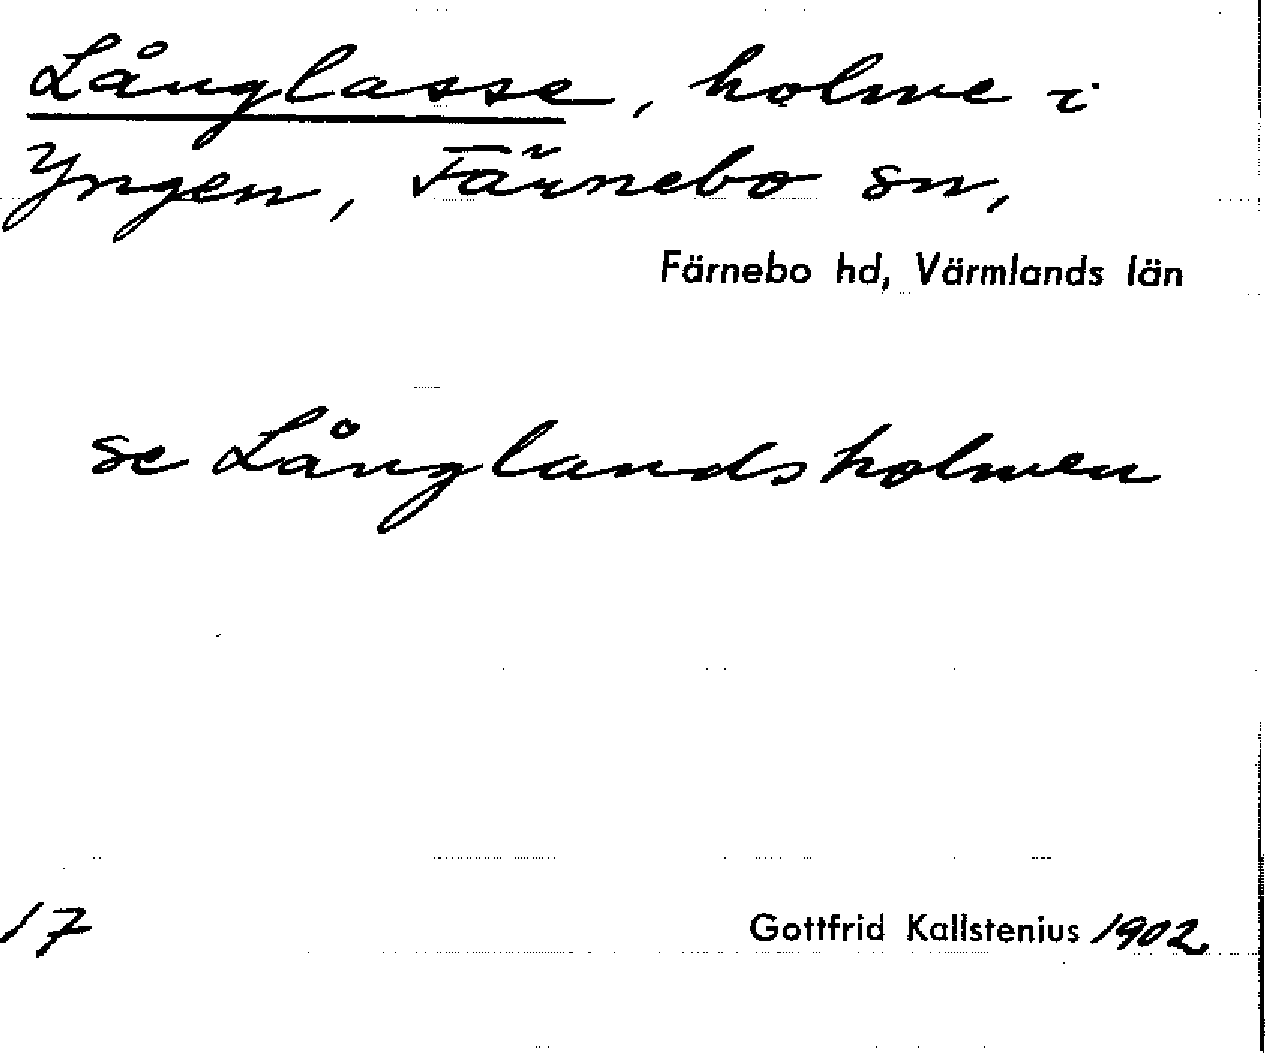 Långlasse, holme i
Yngen, Färnebo sn,
Färnebo hd, Värmlands län
se Långlandsholmen
17
Gottfrid Kallstenius 1902